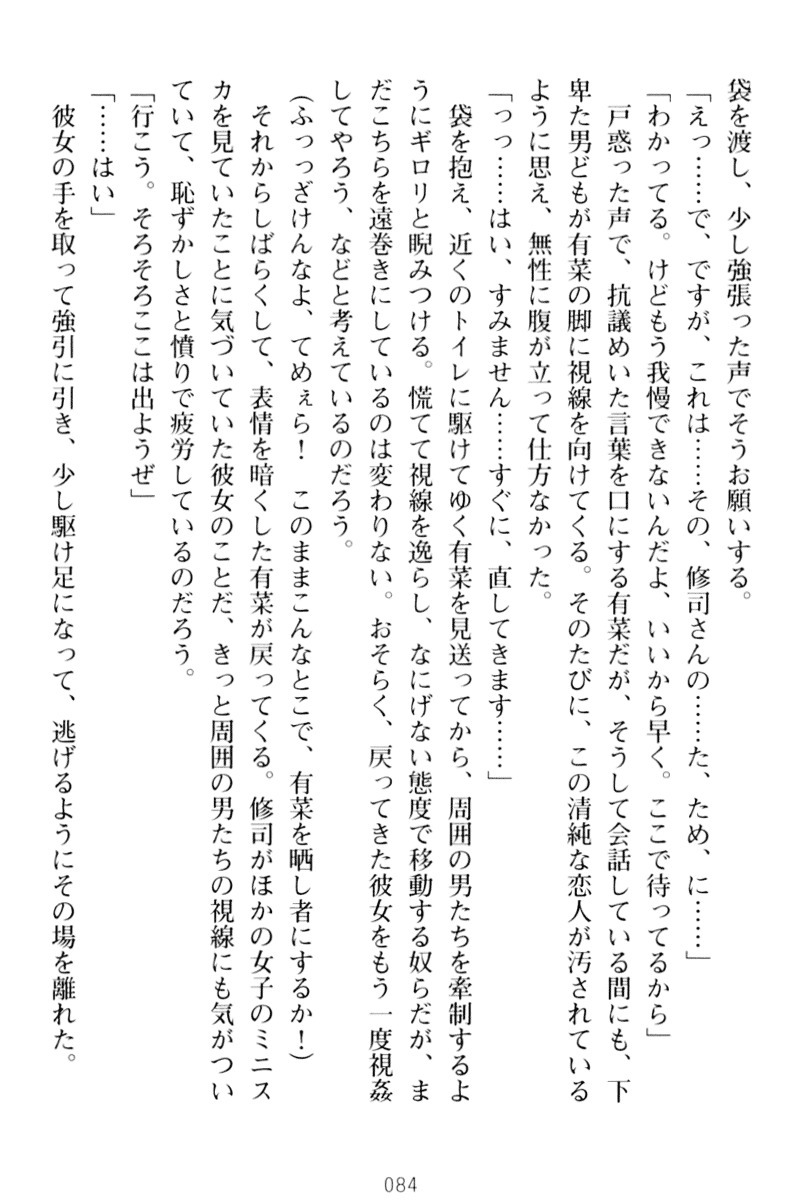 袋を渡し、少し強張った声でそうお願いする。
「えっ……で、ですが、これは……その、修司さんの……た、ため、に……」
「わかってる。けどもう我慢できないんだよ、いいから早く。ここで待ってるから」
　戸惑った声で、抗議めいた言葉を口にする有菜だが、そうして会話している間にも、下
卑た男どもが有菜の脚に視線を向けてくる。そのたびに、この清純な恋人が汚されている
ように思え、無性に腹が立って仕方なかった。
「っっ……はい、すみません……すぐに、直してきます……」
　袋を抱え、近くのトイレに駆けてゆく有菜を見送ってから、周囲の男たちを牽制するよ
うにギロリと睨みつける。慌てて視線を逸らし、なにげない態度で移動する奴らだが、ま
だこちらを遠巻きにしているのは変わりない。おそらく、戻ってきた彼女をもう一度視姦
してやろう、などと考えているのだろう。
（ふっっざけんなよ、てめぇら！　このままこんなとこで、有菜を晒し者にするか！）
　それからしばらくして、表情を暗くした有菜が戻ってくる。修司がほかの女子のミニス
カを見ていたことに気づいていた彼女のことだ、きっと周囲の男たちの視線にも気がつい
ていて、恥ずかしさと憤りで疲労しているのだろう。
「行こう。そろそろここは出ようぜ」
「……はい」
　彼女の手を取って強引に引き、少し駆け足になって、逃げるようにその場を離れた。
084